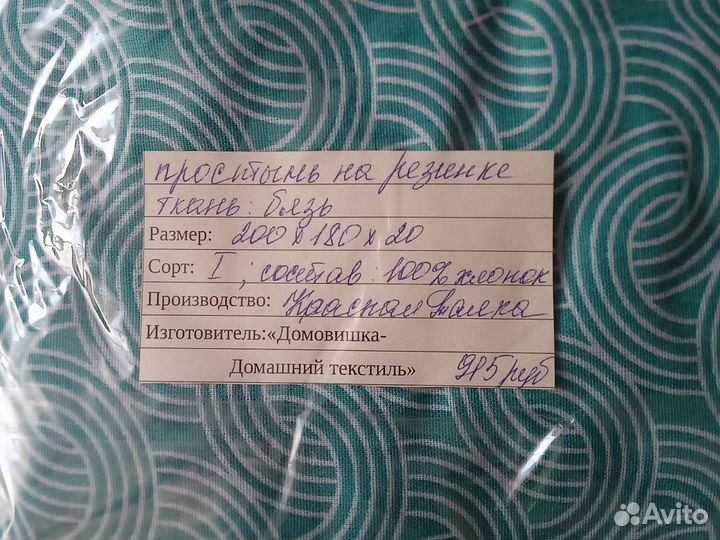 простынь на резинке
ткань: бязь
Размер: 200 х 180 х 20
Сорт: I ; состав: 100% хлопок
Производство: Красная Талка
Изготовитель:«Домовишка-
Домашний текстиль» 915 руб
Avito